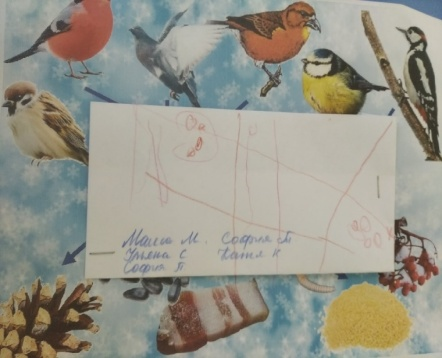 Маша М. София М
Ульяна С Катя К
София П